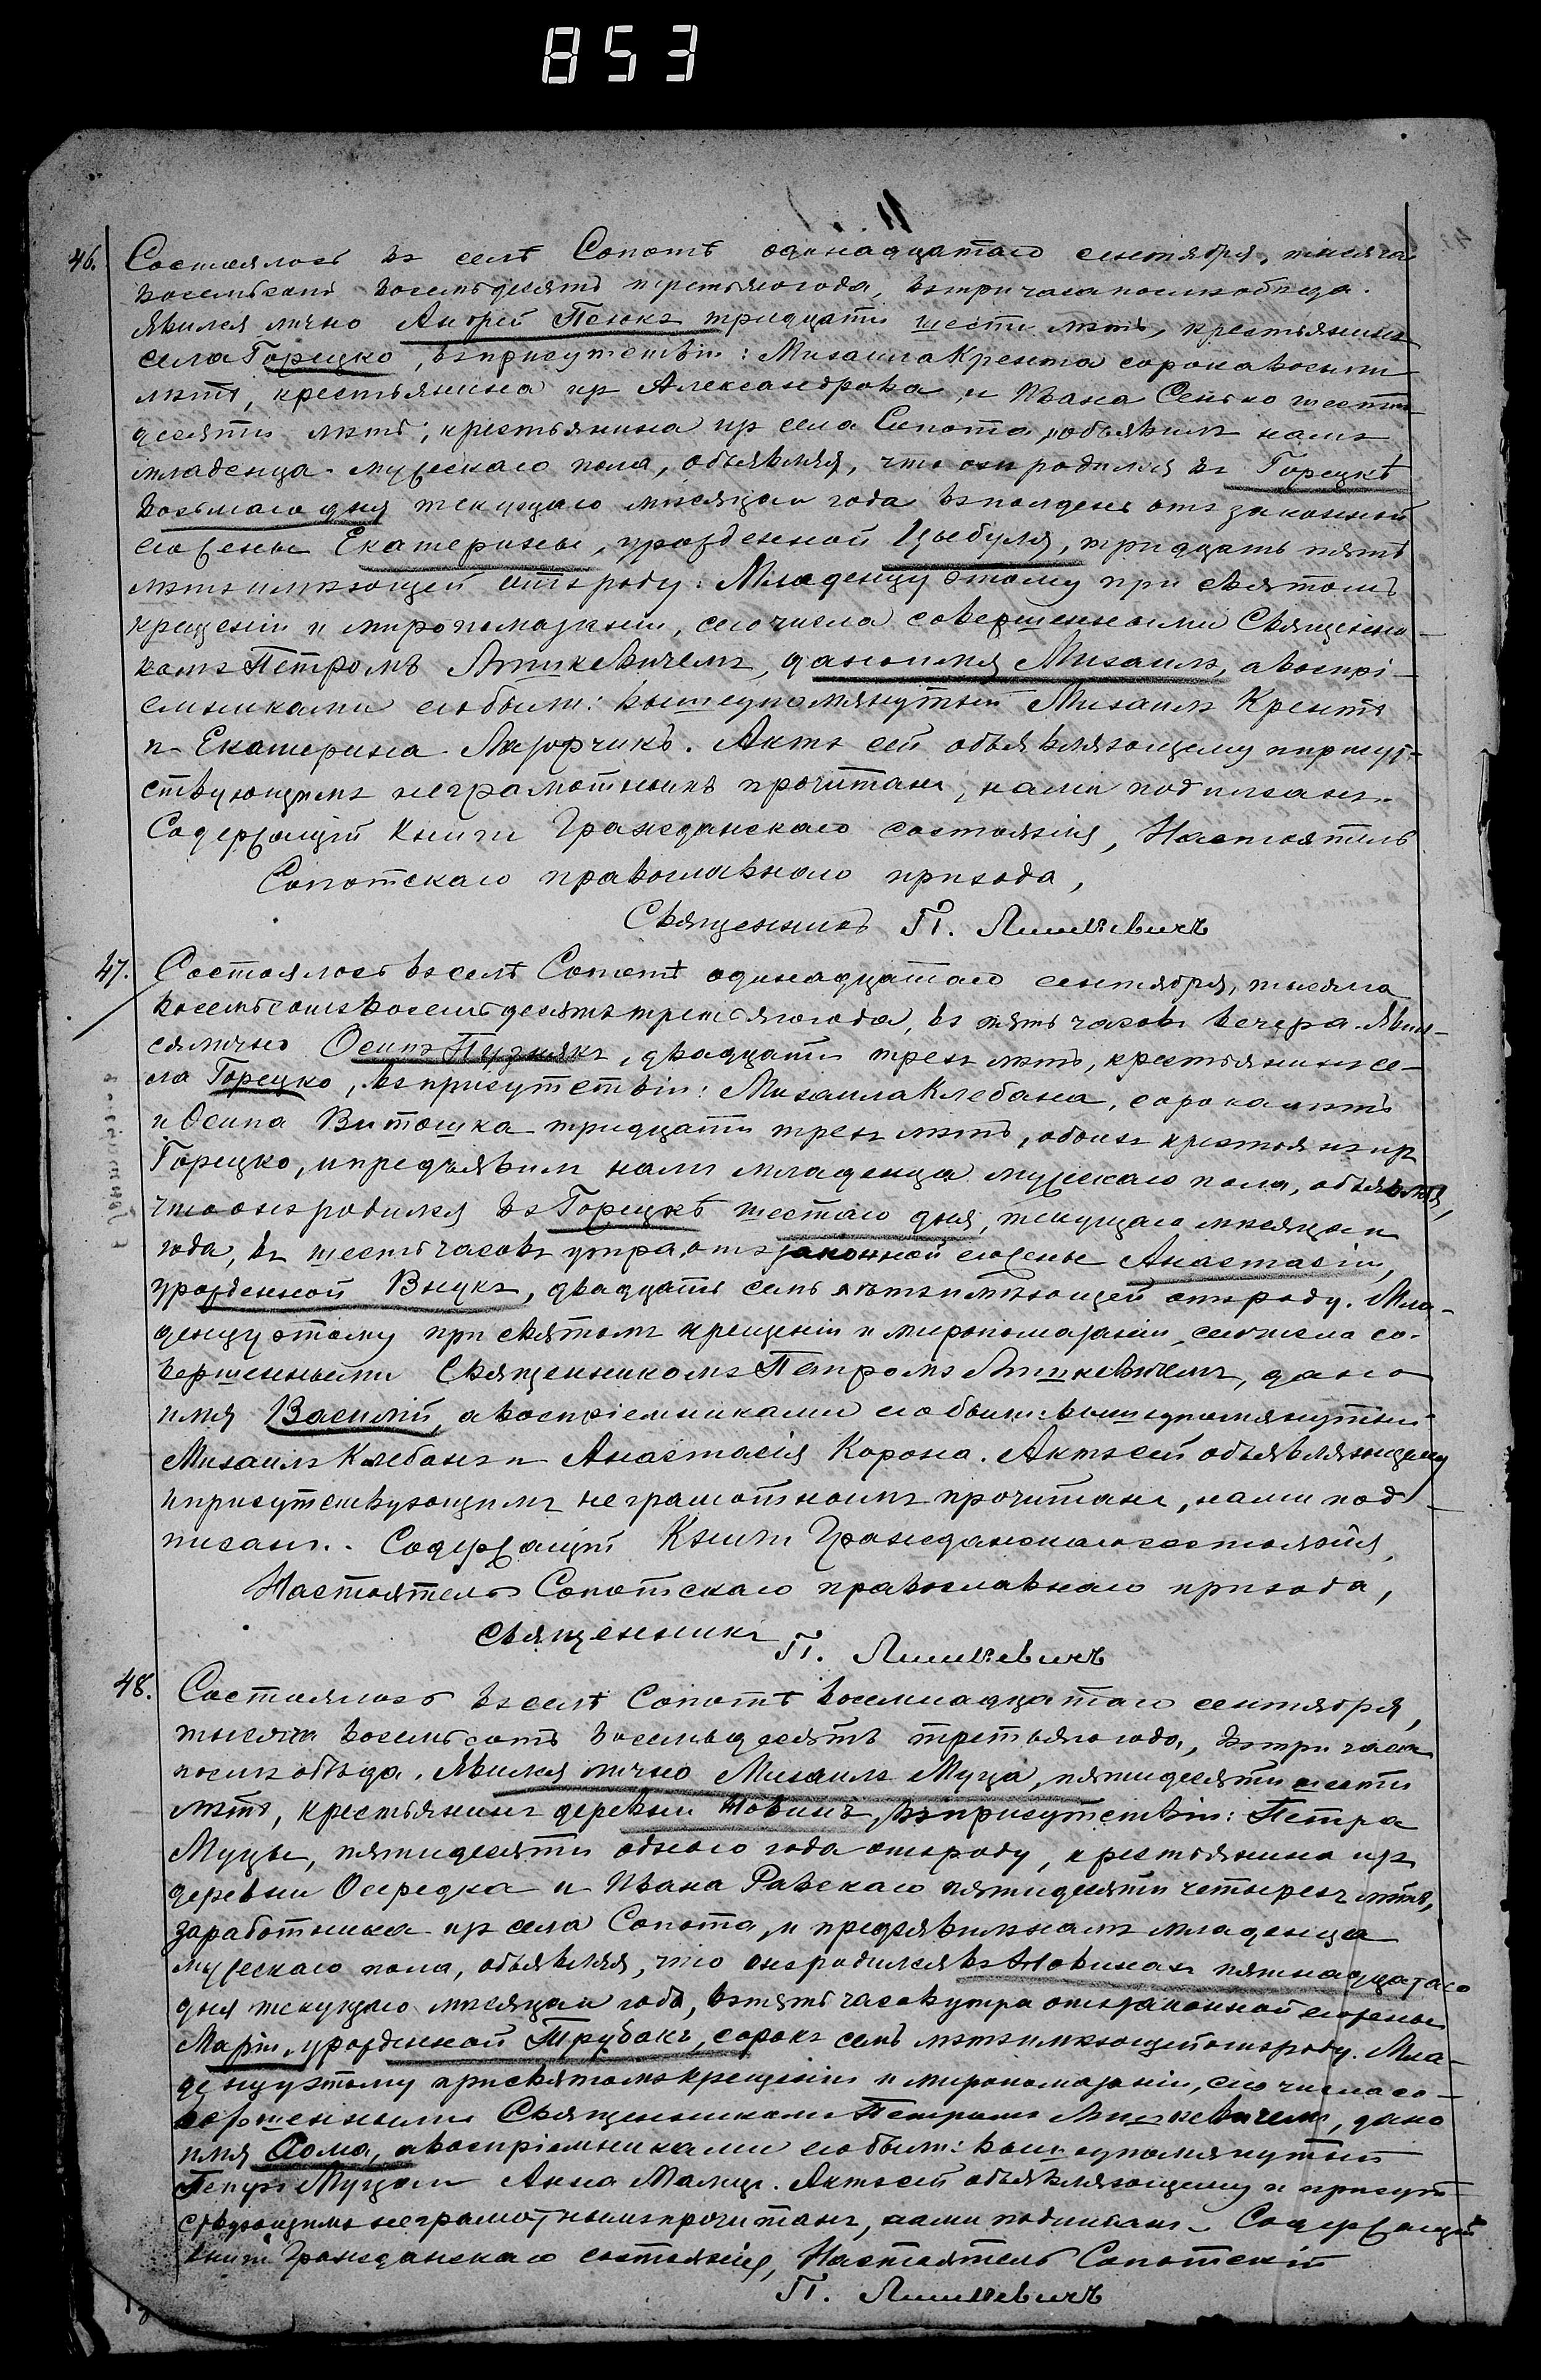 853
46. Состоялось въ селѣ Сопотѣ одинадцатаго сентября, тысяча
восемьсотъ восемьдесятъ третьяго года, въ три часа послѣ обѣда.
Явился лично Андрей тридцати шести лѣтъ, крестьянинъ
села Горецко, въ присутствіи: Михаила Крента сорока восьми
лѣтъ, крестьянина изъ Александрова, и Ивана Сенько шести
десяти лѣтъ, крестьянина изъ села Сопота, объявилъ намъ
младенца мужескаго пола, объявляя, что онъ родился въ Горецкѣ
восьмаго дня текущаго мѣсяца и года въ полдень отъ законной
его жены Екатерины, урожденной Цыбуля, тридцать пять
лѣтъ имѣющей отъ роду. Младенцу этому при святомъ
крещеніи и миропомазаніи, сего числа совершенными Священни-
комъ Петромъ Лишкевичемъ, дано имя Михаилъ, а воспрі-
емниками его были: вышеупомянутый Михаилъ Крентъ
и Екатерина. Актъ сей объявляющему и присут-
ствующимъ неграмотнымъ прочитанъ, нами подписанъ.
Содержащій Книги Гражданскаго состоянія, Настоятель
Сопотскаго православнаго прихода,
Священникъ П. Лишкевичъ
47. Состоялось въ селѣ Сопотѣ одинадцатаго сентября, тысяча
восемьсотъ восемьдесятъ третьяго года, въ пять часовъ вечера. Явил-
ся лично Осипъ Пузнякъ, двадцати трехъ лѣтъ, крестьянинъ се-
ла Горецко, въ присутствіи: Михаила Клебана, сорока лѣтъ
и Осипа Витошка тридцати трехъ лѣтъ, обоихъ крестьянъ изъ
Горецко, и предъявилъ намъ младенца мужескаго пола, объявляя,
что онъ родился въ Горецкѣ шестаго дня, текущаго мѣсяца и
года, въ шесть часовъ утра, отъ законной его жены Анастасіи,
урожденной Внукъ, двадцать семь лѣтъ имѣющей отъ роду. Мла-
денцу этому при святомъ крещеніи и миропомазаніи, сего числа со-
вершенными Священникомъ Петромъ Лишкевичемъ, дано
имя Василій, а воспріемниками его были: вышеупомянутый
Михаилъ Клебанъ и Анастасія Корона. Актъ сей объявляющему
и присутствующимъ неграмотнымъ прочитанъ, нами под-
писанъ. Содержащій Книги Гражданскаго состоянія,
Настоятель Сопотскаго православнаго прихода,
Священникъ П. Лишкевичъ
48. Состоялось въ селѣ Сопотѣ восемнадцатаго сентября,
тысяча восемьсотъ восемьдесятъ третьяго года, въ три часа
послѣ обѣда. Явился лично Михаилъ Муца, пятидесяти шести
лѣтъ, крестьянинъ деревни Новинъ, въ присутствіи: Петра
Муцы, пятидесяти одного года отъ роду, крестьянина изъ
деревни Осередка и Ивана Равскаго пятидесяти четырехъ лѣтъ,
заработника изъ села Сопота, и предъявилъ намъ младенца
мужескаго пола, объявляя, что онъ родился въ Новинахъ пятнадцатаго
дня текущаго мѣсяца и года, въ пять часовъ утра отъ законной его жены
Маріи, урожденной Трубакъ, сорокъ семь лѣтъ имѣющей отъ роду. Мла-
денцу этому при святомъ крещеніи и миропомазаніи, сего числа со-
вершенными Священникомъ Петромъ Лишкевичемъ, дано
имя Ѳома, а воспріемниками его были: вышеупомянутый
Петръ Муца и Анна. Актъ сей объявляющему и присут-
ствующимъ неграмотнымъ прочитанъ, нами подписанъ. Содержащій
Книги Гражданскаго состоянія, Настоятель Сопотскій
П. Лишкевичъ